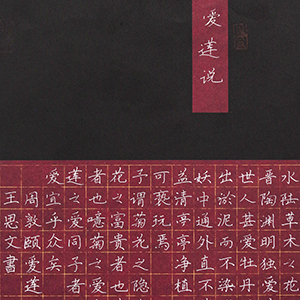 爱莲说
水陆草木之花
晋陶渊明独爱
世人甚爱牡丹
出淤泥而不染
妖中通外直不
益清亭亭净植
可亵玩焉
子谓菊花之隐
花之富贵者也
者也噫菊之爱
莲之爱同予者
爱宜乎众矣
周敦颐爱莲
王思文書